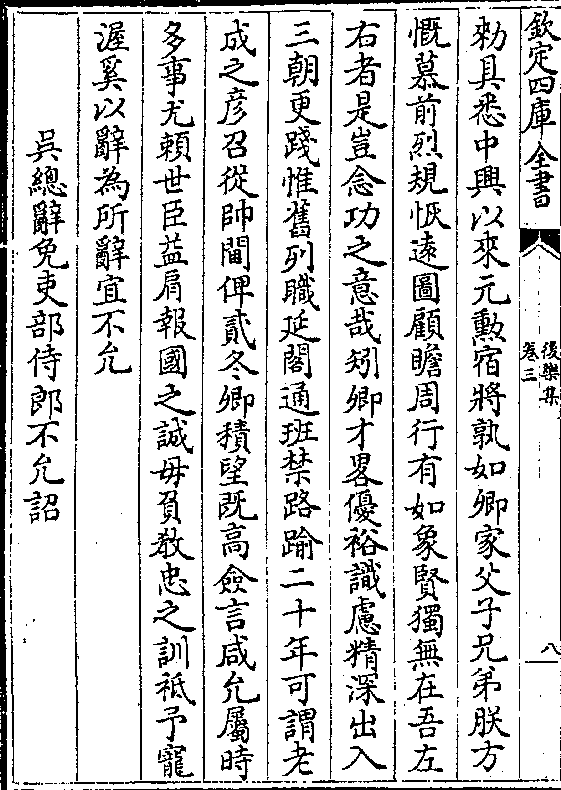 欽定四庫全書
後樂集
卷三
八
勑具悉中興以來元勲宿將孰如卿家父子兄弟朕方
慨慕前烈規恢遠圖顧瞻周行有如象賢獨無在吾左
右者是豈念功之意哉矧卿才畧優裕識慮精深出入
三朝更踐惟舊列職延閣通班禁路踰二十年可謂老
成之彦召從帥閫俾貳冬卿積望既高僉言咸允屬時
多事尤賴世臣益肩報國之誠毋負教忠之訓祗予寵
渥奚以辭為所辭宜不允
吳總辭免吏部侍郎不允詔